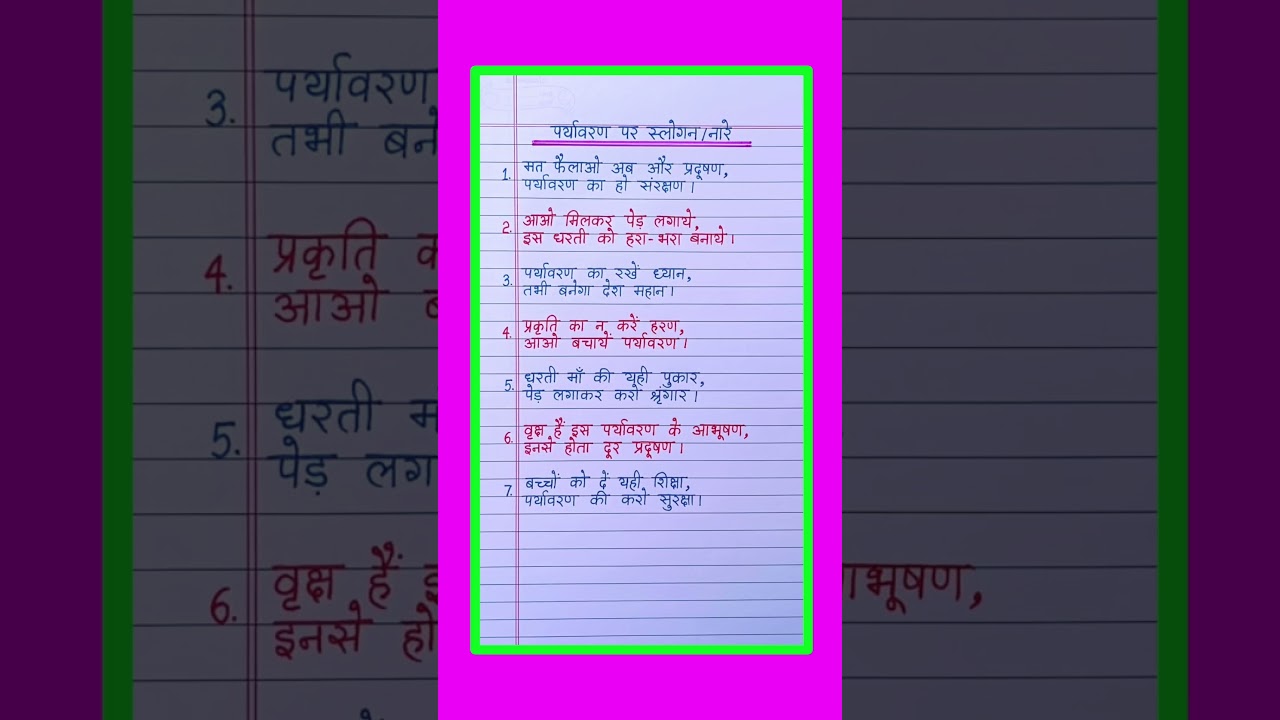 पर्यावरण पर स्लोगन/नारे
1. मत फैलाओ अब और प्रदूषण,
पर्यावरण का हो संरक्षण।
2. आओ मिलकर पेड़ लगाये,
इस धरती को हरा-भरा बनाये।
3. पर्यावरण का रखें ध्यान,
तभी बनेगा देश महान।
4. प्रकृति का न करें हरण,
आओ बचायें पर्यावरण।
5. धरती माँ की यही पुकार,
पेड़ लगाकर करो श्रृंगार।
6. वृक्ष हैं इस पर्यावरण के आभूषण,
इनसे होता दूर प्रदूषण।
7. बच्चों को दें यही शिक्षा,
पर्यावरण की करो सुरक्षा।